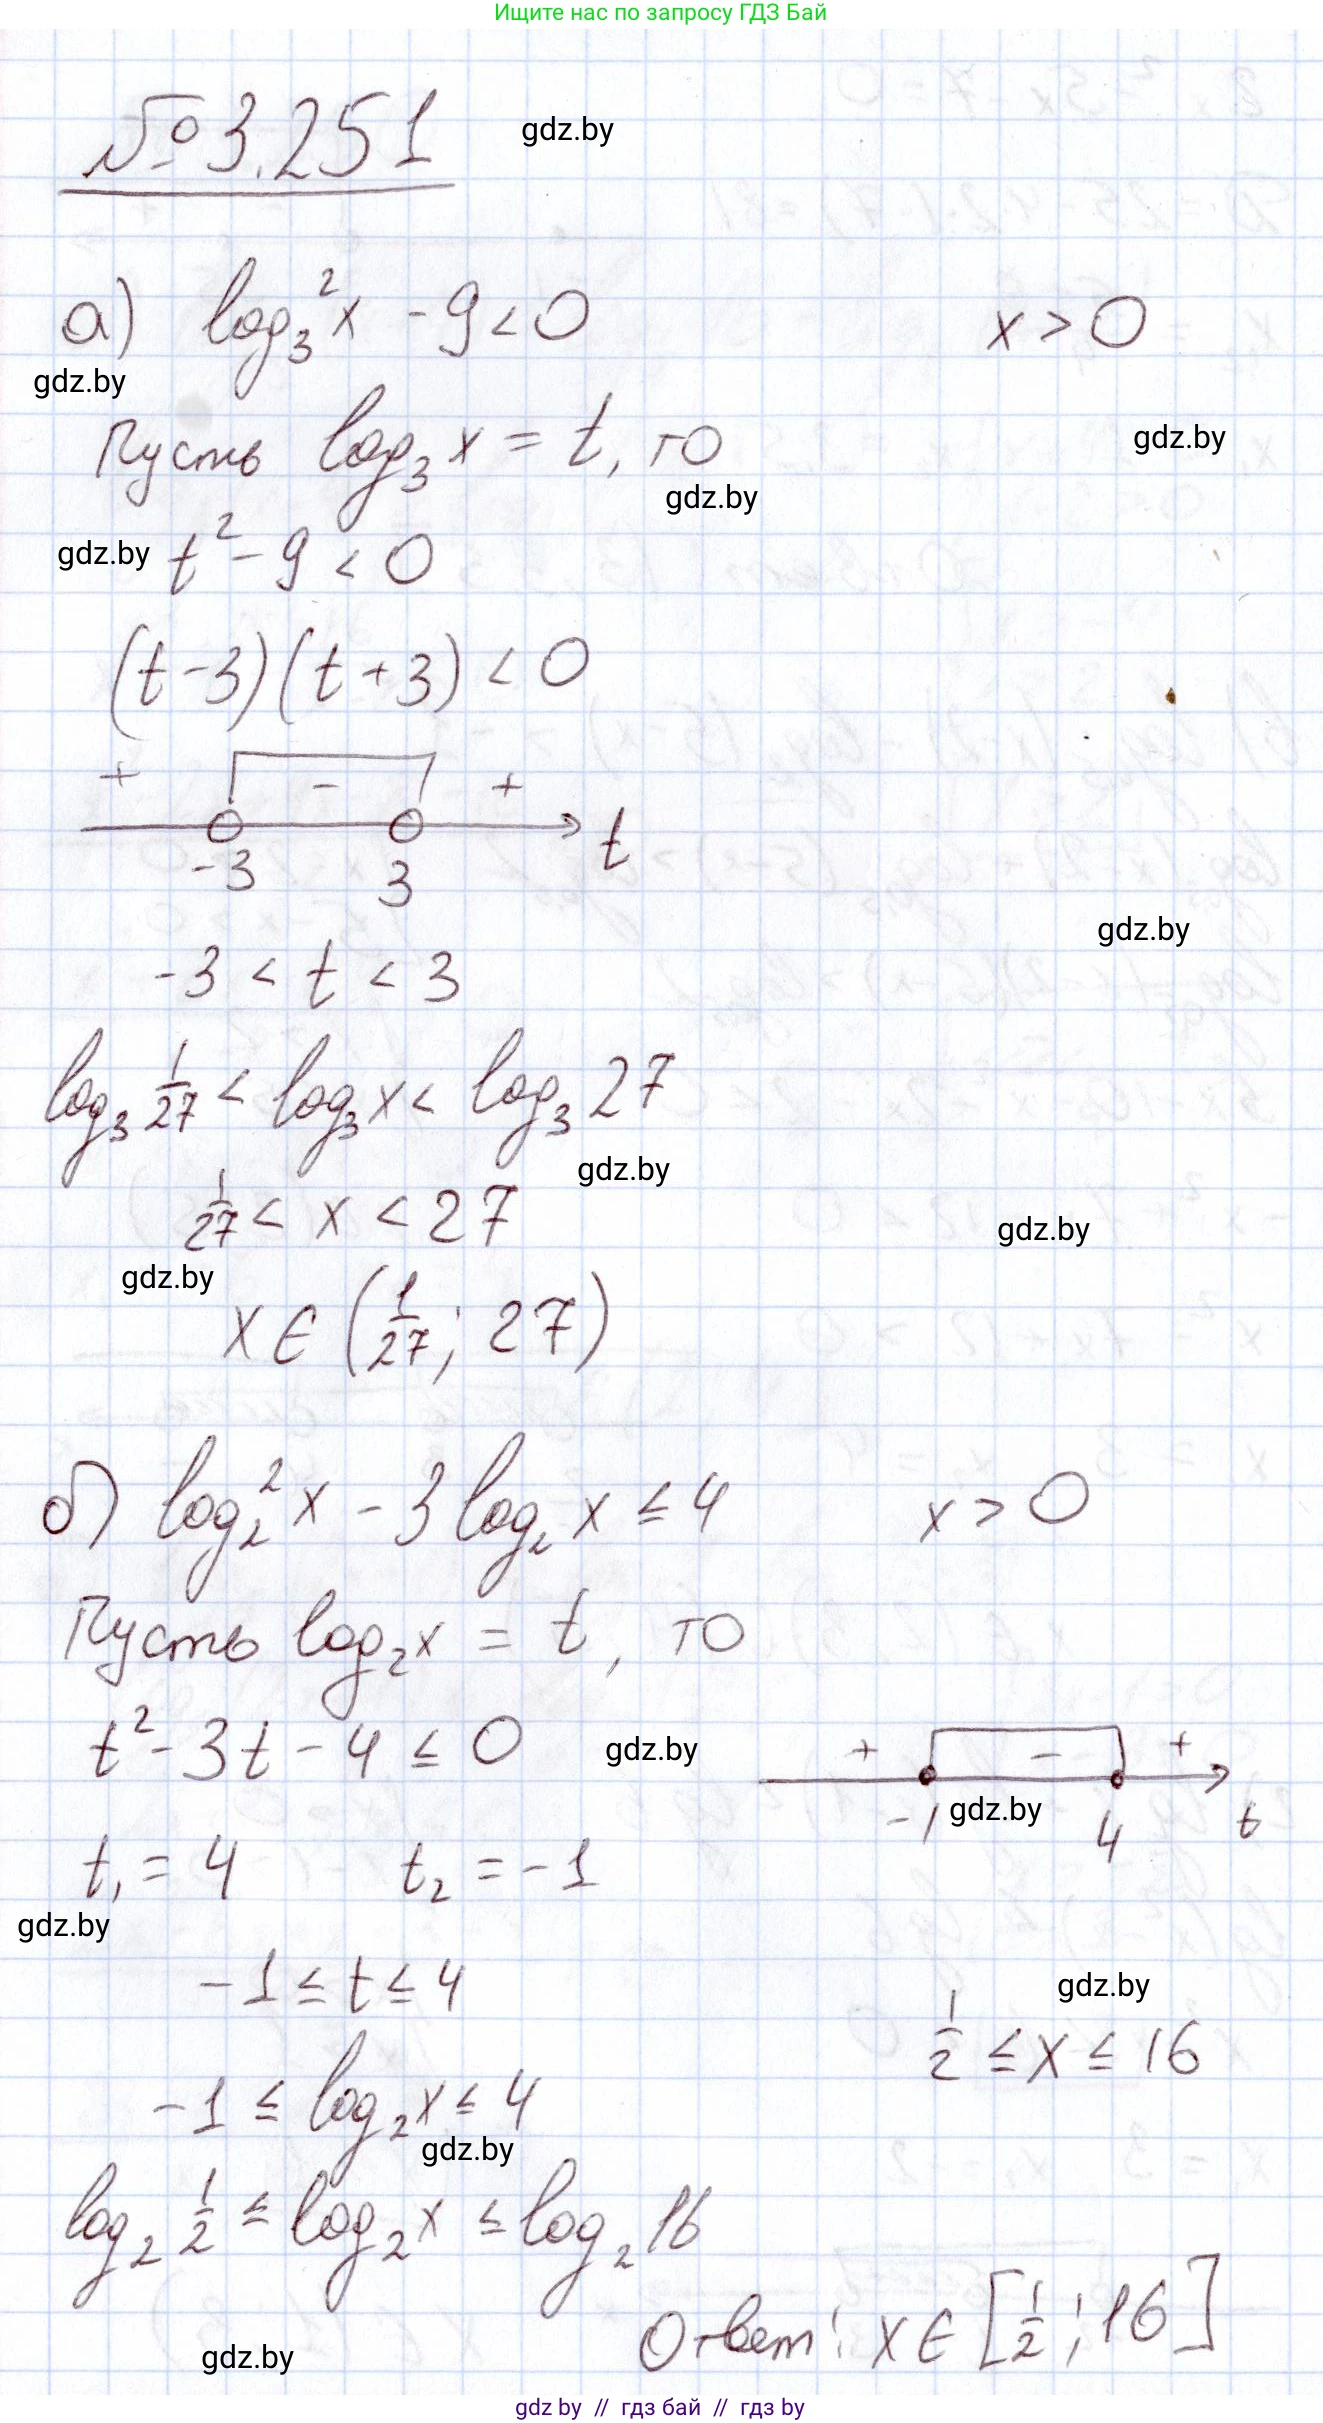 Ищите нас по запросу ГДЗ Бай
№3.251
gdz.by
а) log₃²x - 9 < 0
x > 0
gdz.by
Пусть log₃x = t, то
gdz.by
gdz.by
gdz.by
t² - 9 < 0
(t-3)(t+3) < 0
+ - +
-3 3 t
gdz.by
-3 < t < 3
log₃ 1/27 < log₃x < log₃27
gdz.by
1/27 < x < 27
gdz.by
gdz.by
x ∈ (1/27; 27)
б) log₂²x - 3log₂x ≤ 4
x > 0
Пусть log₂x = t, то
t² - 3t - 4 ≤ 0
gdz.by
+ - +
-1 4 t
gdz.by
t₁ = 4 t₂ = -1
gdz.by
-1 ≤ t ≤ 4
gdz.by
1/2 ≤ x ≤ 16
-1 ≤ log₂x ≤ 4
gdz.by
log₂ 1/2 ≤ log₂x ≤ log₂16
Ответ: x ∈ [1/2; 16]
gdz.by
gdz by // гдз бай // гдз by